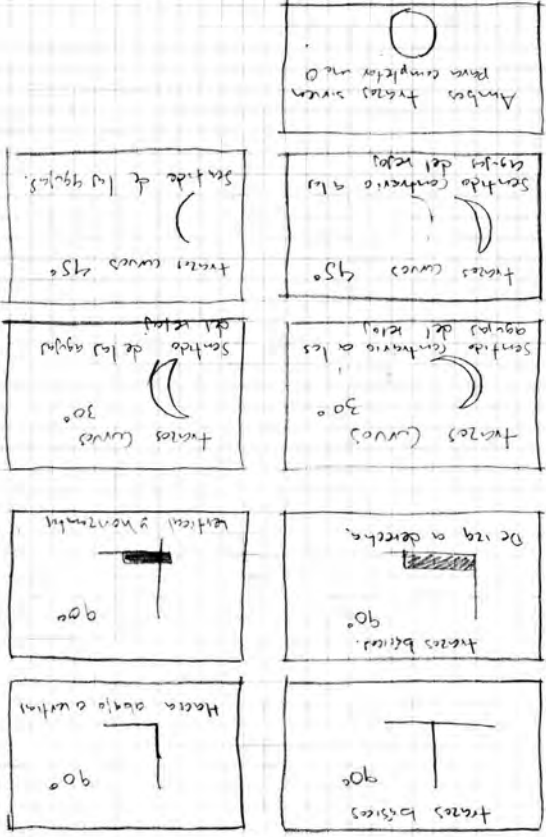 trazos básicos
90°
90°
Hacia abajo e vertical
trazos básicos.
90°
De izq a derecha.
90°
vertical y horizontal
trazos curvos
30°
Sentido contrario a las
agujas del reloj
trazos curvos
30°
Sentido de las agujas
del reloj
trazos curvos 45°
Sentido contrario a las
agujas del reloj
trazos curvos 45°
Sentido de las agujas.
Ambos trazos sirven
para completar una O